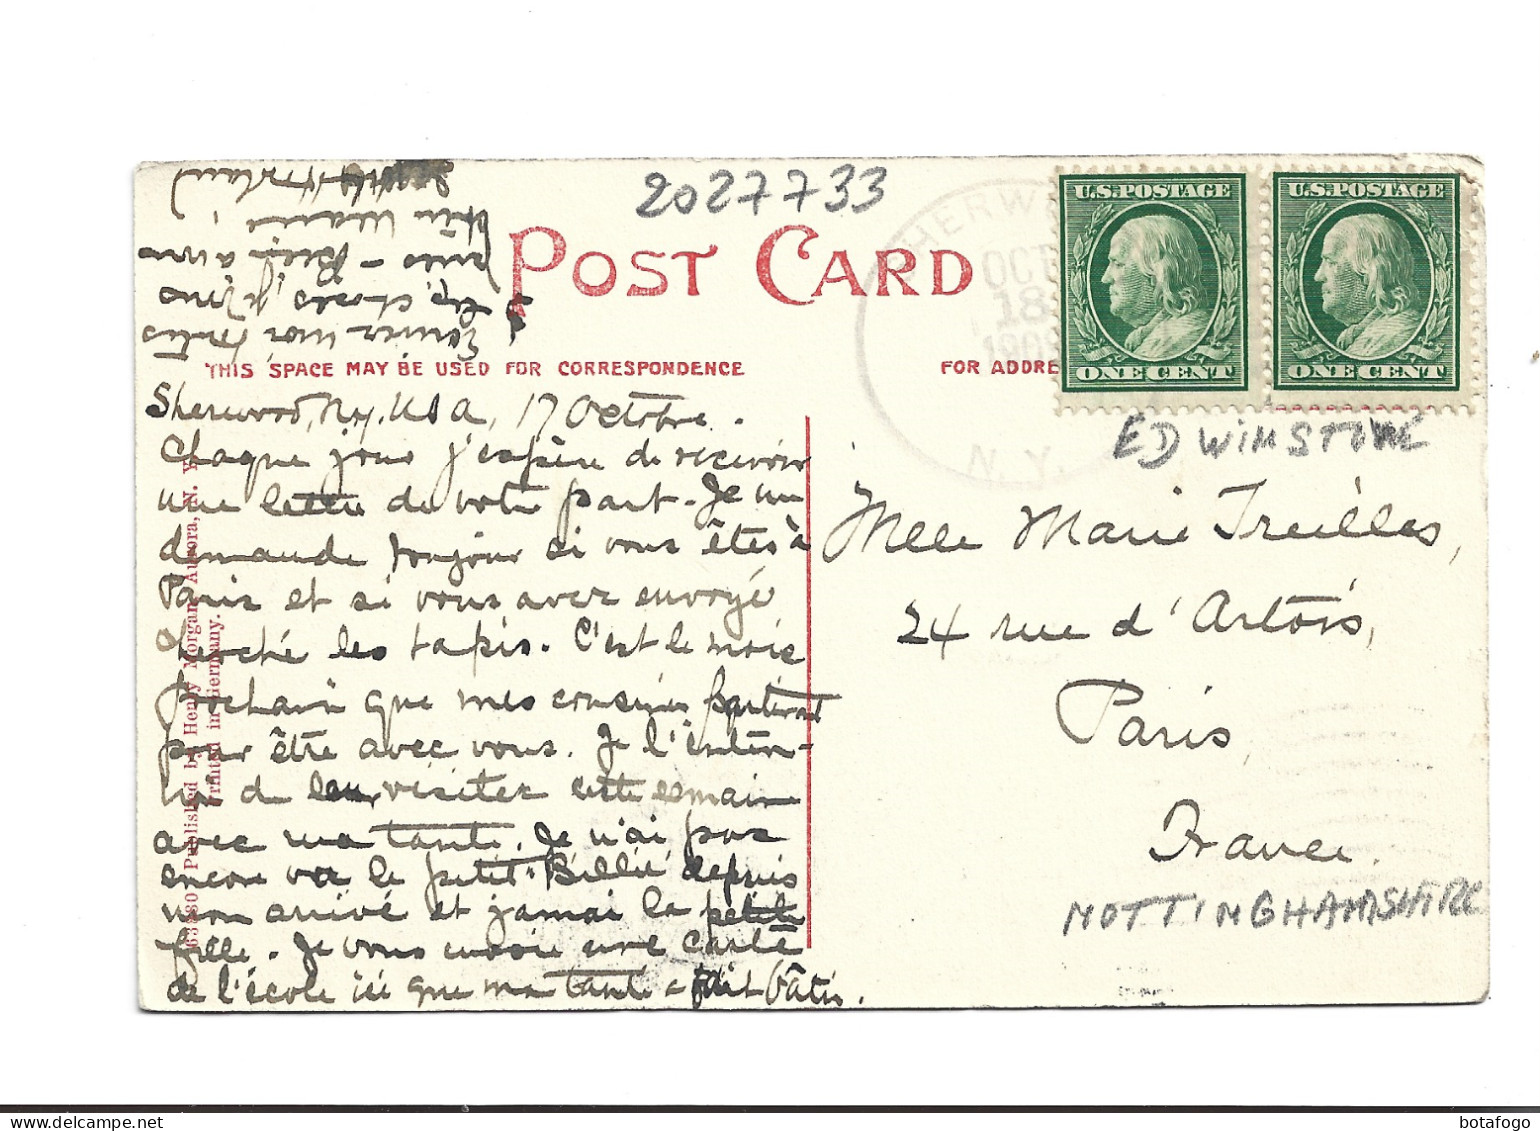 2027733
POST CARD
THIS SPACE MAY BE USED FOR CORRESPONDENCE
FOR ADDRE
SHERW
OCT
18
1909
N. Y.
U.S. POSTAGE
ONE CENT
U.S. POSTAGE
ONE CENT
Sherwood, N.Y. USA, 17 Octobre.
Chaque jour j'espère de recevoir
une lettre de votre part. Je me
demande toujour si vous êtes à
Paris et si vous avez envoyé
cherché les tapis. C'est le mois
prochain que mes cousins partiront
pour être avec vous. Je l'inten-
de leur visiter cette semaine
avec ma tante. Je n'ai pas
encore vu le petit Billie depuis
mon arrivé et jamai la petite
fille. Je vous envoie une carte
de l'école ici que ma tante a fait bâtir.
Ecrivez moi toutes
les choses, je vous
prie - Bien à vous
63380 Published by Henry Morgan, Aurora, N. Y.
Printed in Germany.
EDWINSTOWE
Mlle Marie Treilles,
24 rue d'Artois,
Paris,
France.
NOTTINGHAMSHIRE
botafogo